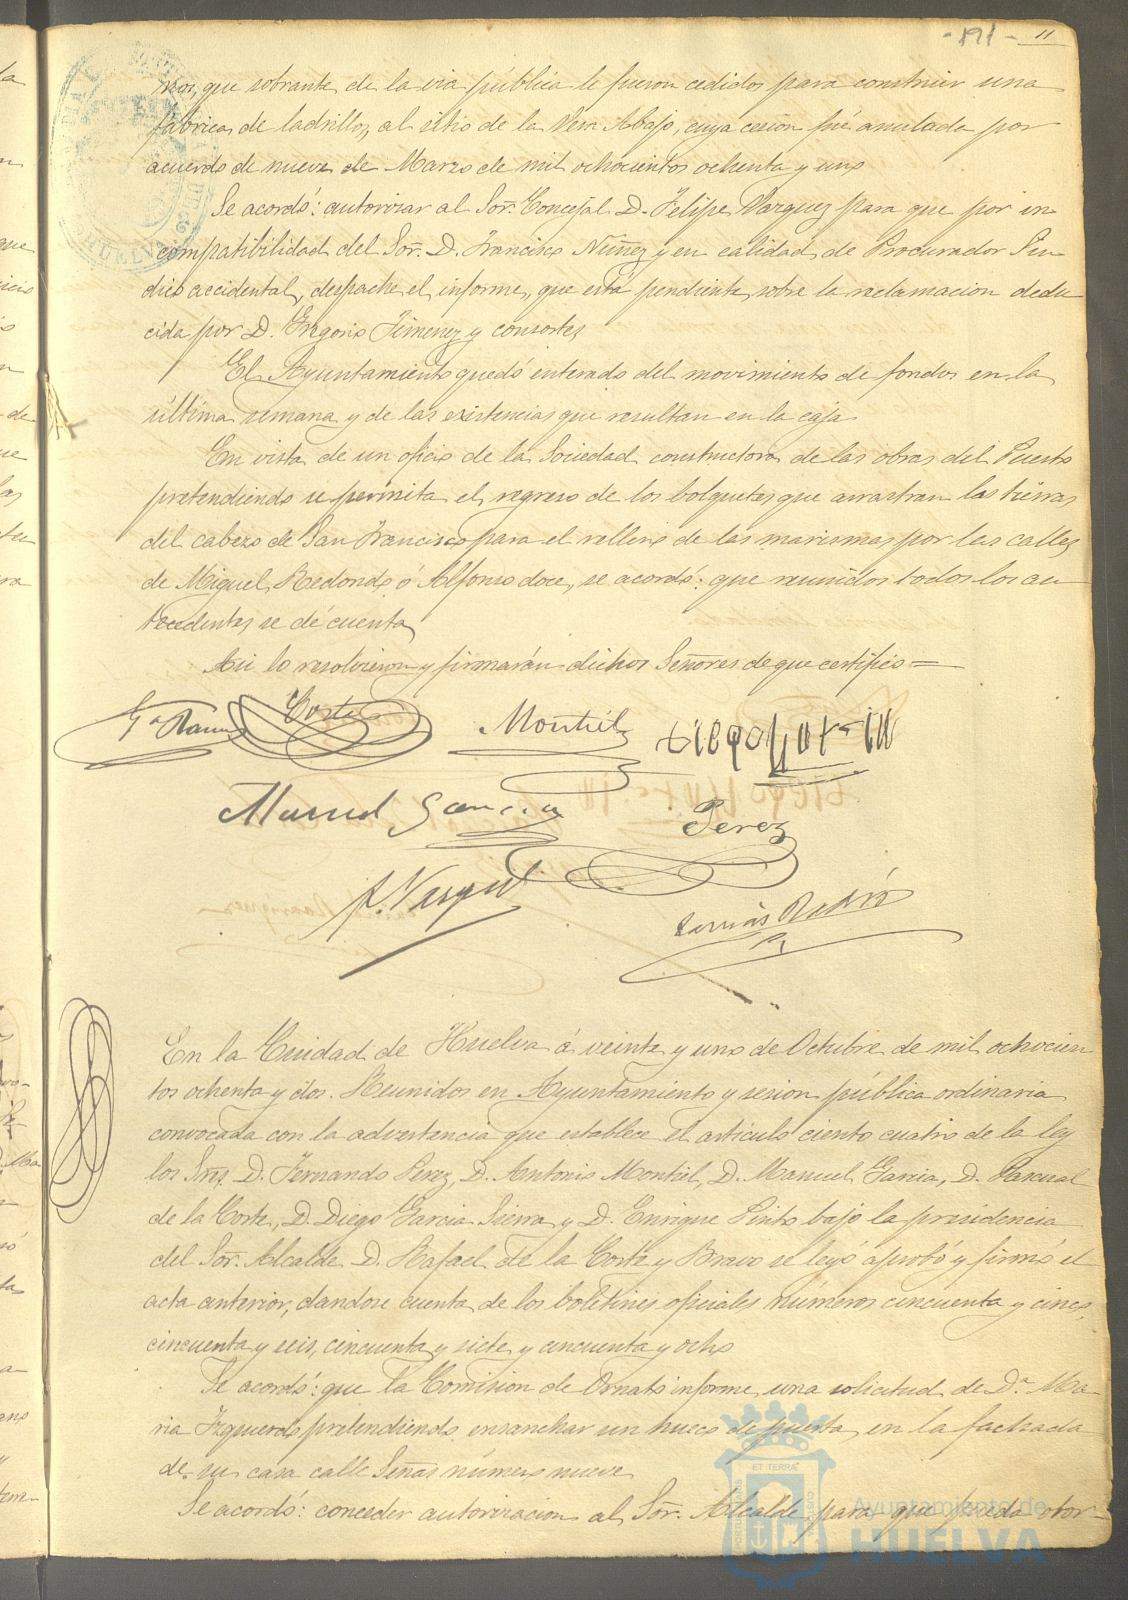 -191- 11
nos, que sobrante de la via pública le fueron cedidos para construir una
fábrica de ladrillos, al sitio de la Vera Abajo, cuya cesion fué anulada por
acuerdo de nueve de Marzo de mil ochocientos ochenta y uno
Se acordó: autorizar al Sor. Concejal D. Felipe Vazquez para que por in-
compatibilidad del Sor. D. Francisco Nuñez y en calidad de Procurador Sin-
dico accidental, despache el informe, que está pendiente, sobre la reclamacion dedu-
cida por D. Gregorio Jimenez y consortes
El Ayuntamiento quedó enterado del movimiento de fondos en la
última semana y de las existencias que resultan en la caja.
En vista de un oficio de la Sociedad constructora de las obras del Puerto
pretendiendo se permita el regreso de los bolquetes que arrastran las tierras
del cabezo de San Francisco para el relleno de las marismas por las calles
de Miguel Redondo ó Alfonso doce, se acordó: que reunidos todos los an-
tecedentes se dé cuenta
Asi lo resolvieron y firmarán dichos Señores de que certifico=
Cortes Montiel
Manuel Garcia Perez
F. Vazquez
Tomás
En la Ciudad de Huelva á veinte y uno de Octubre de mil ochocien-
tos ochenta y dos. Reunidos en Ayuntamiento y sesion pública ordinaria
convocada con la advertencia que establece el artículo ciento cuatro de la ley
los Sres. D. Fernando Perez, D. Antonio Montiel, D. Manuel Garcia, D. Pascual
de la Corte, D. Diego Garcia Sierra y D. Enrique Pinto bajo la presidencia
del Sor. Alcalde D. Rafael de la Corte y Bravo se leyó aprobó y firmó el
acta anterior, dandose cuenta de los boletines oficiales números cincuenta y cinco,
cincuenta y seis, cincuenta y siete y cincuenta y ocho
Se acordó: que la Comision de Ornato informe una solicitud de Da. Ma-
ria Izquierdo pretendiendo ensanchar un hueco de puerta en la fachada
de su casa calle Señas número nueve
Se acordó: conceder autorizacion al Sor. Alcalde para que pueda otor-
Ayuntamiento de
HUELVA